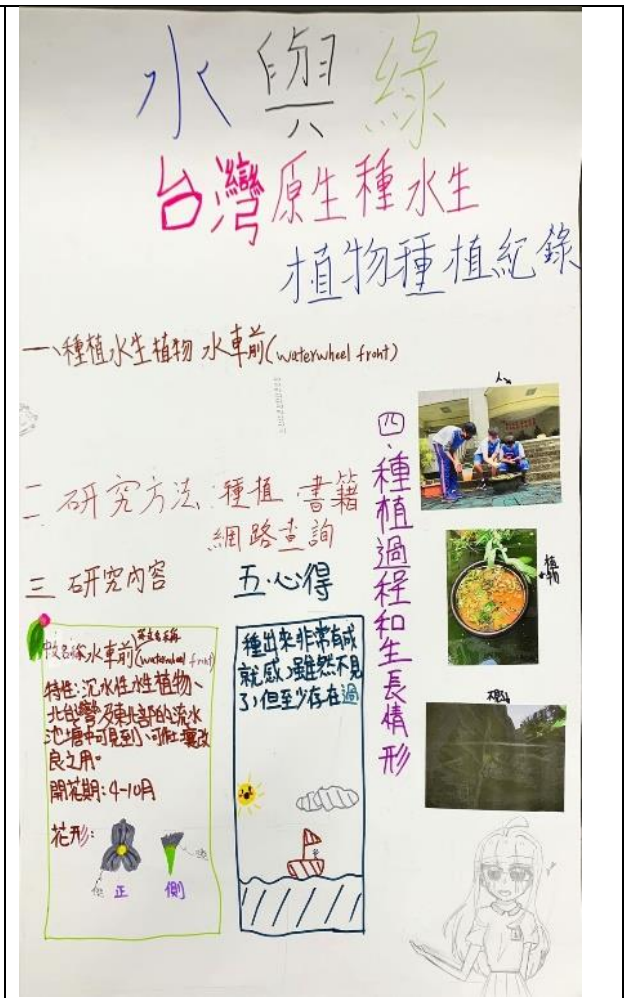 水與綠
台灣原生種水生
植物種植紀錄
一、種植水生植物 水車前(waterwheel front)
二 研究方法:種植 書籍
網路查詢
三 研究內容
水車前(waterwheel front)
英文名稱
特性:沉水性水生植物、
北台灣及東北部的流水
池塘中可見到、可做土壤改
良之用。
開花期:4-10月
花形:
正
側
五、心得
種出來非常有成
就感,雖然不見
了,但至少存在過
四、種植過程和生長情形
人
植物